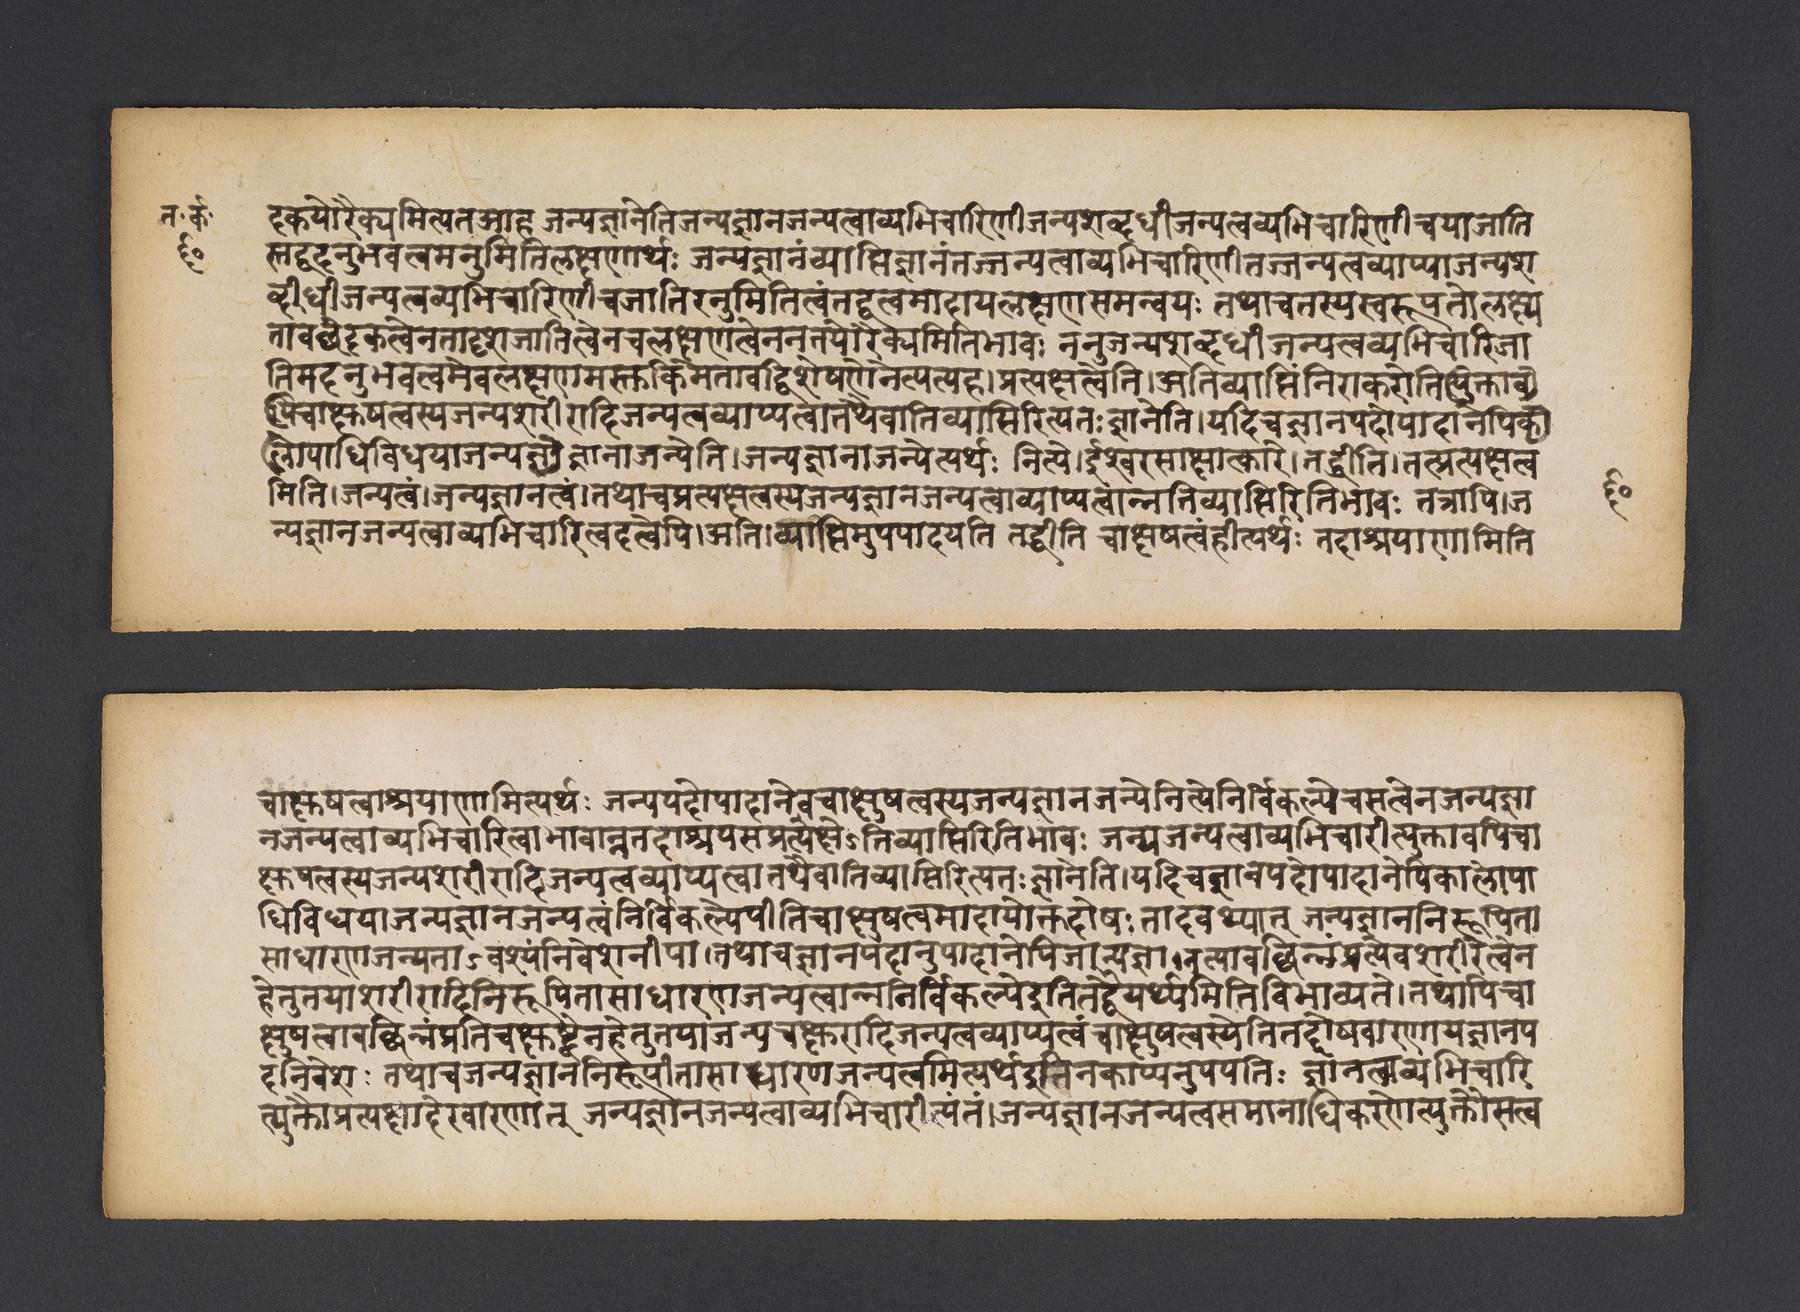 त॰ क॰
६०
दकयोरैक्यमित्यतआह जन्यज्ञानेतिजन्यज्ञानजन्यत्वाव्यभिचारिणीजन्यशब्दधीजन्यत्वव्यभिचारिणीचयाजाति
स्तद्वदनुभवत्वमनुमितिलक्षणार्थः जन्यज्ञानंव्याप्तिज्ञानंतज्जन्यत्वाव्यभिचारिणीतज्जन्यत्वव्याप्याजन्यश
ब्दीधीजन्यत्वव्यभिचारिणीचजातिरनुमितित्वंतद्वत्वमादायलक्षणसमन्वयः तथाचतस्यस्वरूपतोलक्ष्ये
तावछेदकत्वेनतादृशजातित्वेनचलक्षणत्वेननतयोरैक्यमितिभावः ननुजन्यशब्दधीजन्यत्वव्यभिचारिजा
तिमदनुभवत्वमेवलक्षणमस्तकिमेतावद्विशेषणेनेत्यत्यह।प्रत्यक्षत्वेति।अतिव्याप्तिंनिराकरोतित्युक्ताव
पिचाक्षुषत्वस्यजन्यशरीरादिजन्यत्वव्याप्यत्वातथैवातिव्याप्तिरित्यतःज्ञानेति।यदिचज्ञानपदोपादानेपिका
लोपाधिविधयाजन्यज्ञौ ज्ञानाजन्येति।जन्यज्ञानाजन्येत्यर्थः नित्ये।ईश्वरसाक्षात्कारे।तद्धीति।तत्प्रत्यक्षत्व
मिति।जन्यत्वं।जन्यज्ञानत्वं।तथाचप्रत्यक्षत्वस्यजन्यज्ञानजन्यत्वाव्याप्यत्वान्नतिव्याप्तिरितिभावः तत्रापि।ज
६०
न्यज्ञानजन्यत्वाव्यभिचारित्वदलेपि।अति।व्याप्तिमुपपादयति तद्धीति चाक्षुषत्वंहीत्यर्थः तदाश्रयाणामिति
चाक्षुषत्वाश्रयाणामित्यर्थः जन्यपदोपादानेवचाक्षुषत्वस्यजन्यज्ञानजन्येनित्येनिर्विकल्पेचसत्वेनजन्यज्ञा
नजन्यत्वाव्यभिचारित्वाभावान्नतदाश्रयसप्रत्यक्षेऽतिव्याप्तिरितिभावः जन्यजन्यत्वाव्यभिचारीत्युक्तावपिचा
क्षुषत्वस्यजन्यशरीरादिजन्यत्वव्याप्यत्वातथैवातिव्याप्तिरित्यतःज्ञानेति।यदिचज्ञानपदोपादानेपिकालोपा
धिविधयाजन्यज्ञानजन्यत्वंनिर्विकल्पेपीतिचाक्षुषत्वमादायोक्तदोषःतादवथ्यात् जन्यज्ञाननिरूपिता
साधारणजन्यताऽवश्यंनिवेशनीया।तथाचज्ञानपदानुपादानेपिजान्यज्ञा।नत्यावछिन्नंप्रत्येवशरीरत्वेन
हेतुतयाशरीरादिनिरूपितासाधारणजन्यत्वान्ननिर्विकल्पेदुतितद्वैयर्थ्यमितिविभाव्यते।तथापिचा
क्षुषत्वावछिन्नंप्रतिचक्षुष्ट्वेनहेतुतयाजन्यचक्षुरादिजन्यत्वव्याप्यत्वंचाक्षुषत्वस्येतितद्दोषवारणायज्ञानप
दनिवेशः तथाचजन्यज्ञाननिरूपीतासाधारणजन्यत्वमित्यर्थदुतिनकाप्यनुपपतिः ज्ञानत्वाव्यभिचारि
त्युक्तौप्रत्यक्षादेरवारणात् जन्यज्ञानजन्यत्वाव्यभिचारीत्यंतं।जन्यज्ञानजन्यत्वसमानाधिकरणेत्युक्तौसत्व